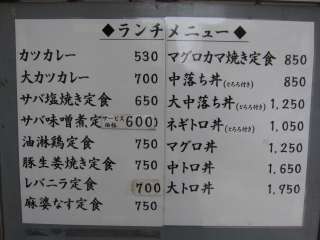 ◆ランチメニュー◆
カツカレー 530
大カツカレー 700
サバ塩焼き定食 650
サバ味噌煮定 サービス価格 600
油淋鶏定食 750
豚生姜焼き定食 750
レバニラ定食 700
麻婆なす定食 750
マグロカマ焼き定食 850
中落ち丼(とろろ付き) 850
大中落ち丼(とろろ付き) 1,250
ネギトロ丼(とろろ付き) 1,050
マグロ丼 1,250
中トロ丼 1,650
大トロ丼 1,950